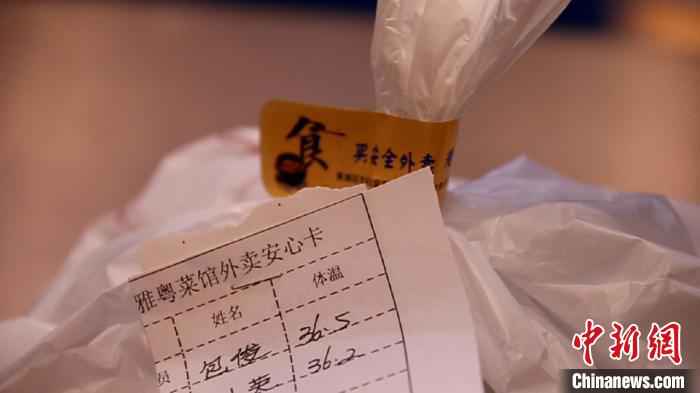 食 买安全外卖
雅粤菜馆外卖安心卡
姓名 体温
员 包俊 36.5
英 36.2
中新网
Chinanews.com